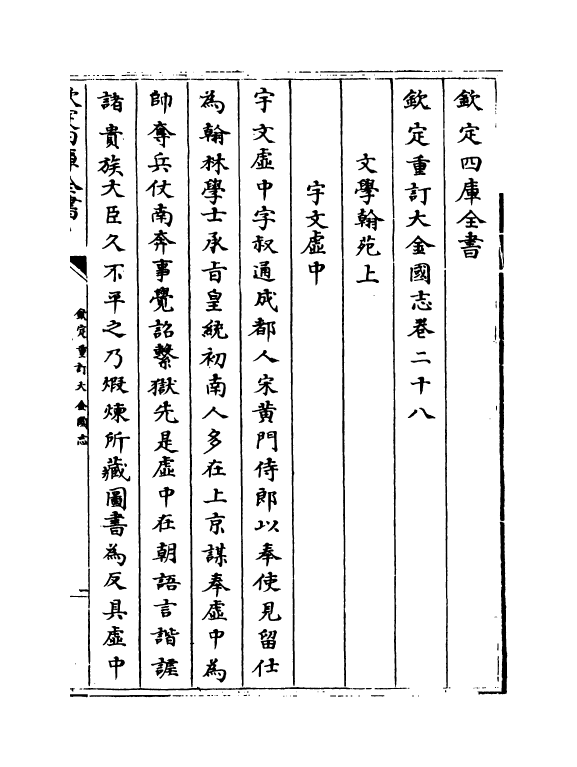 欽定四庫全書
欽定重訂大金國志卷二十八
文學翰苑上
宇文虛中
宇文虛中字叔通成都人宋黃門侍郎以奉使見留仕
為翰林學士承旨皇統初南人多在上京謀奉虛中為
帥奪兵仗南奔事覺詔繫獄先是虛中在朝語言諧謔
諸貴族大臣久不平之乃煆煉所藏圖書為反具虛中
欽定四庫全書
欽定重訂大金國志